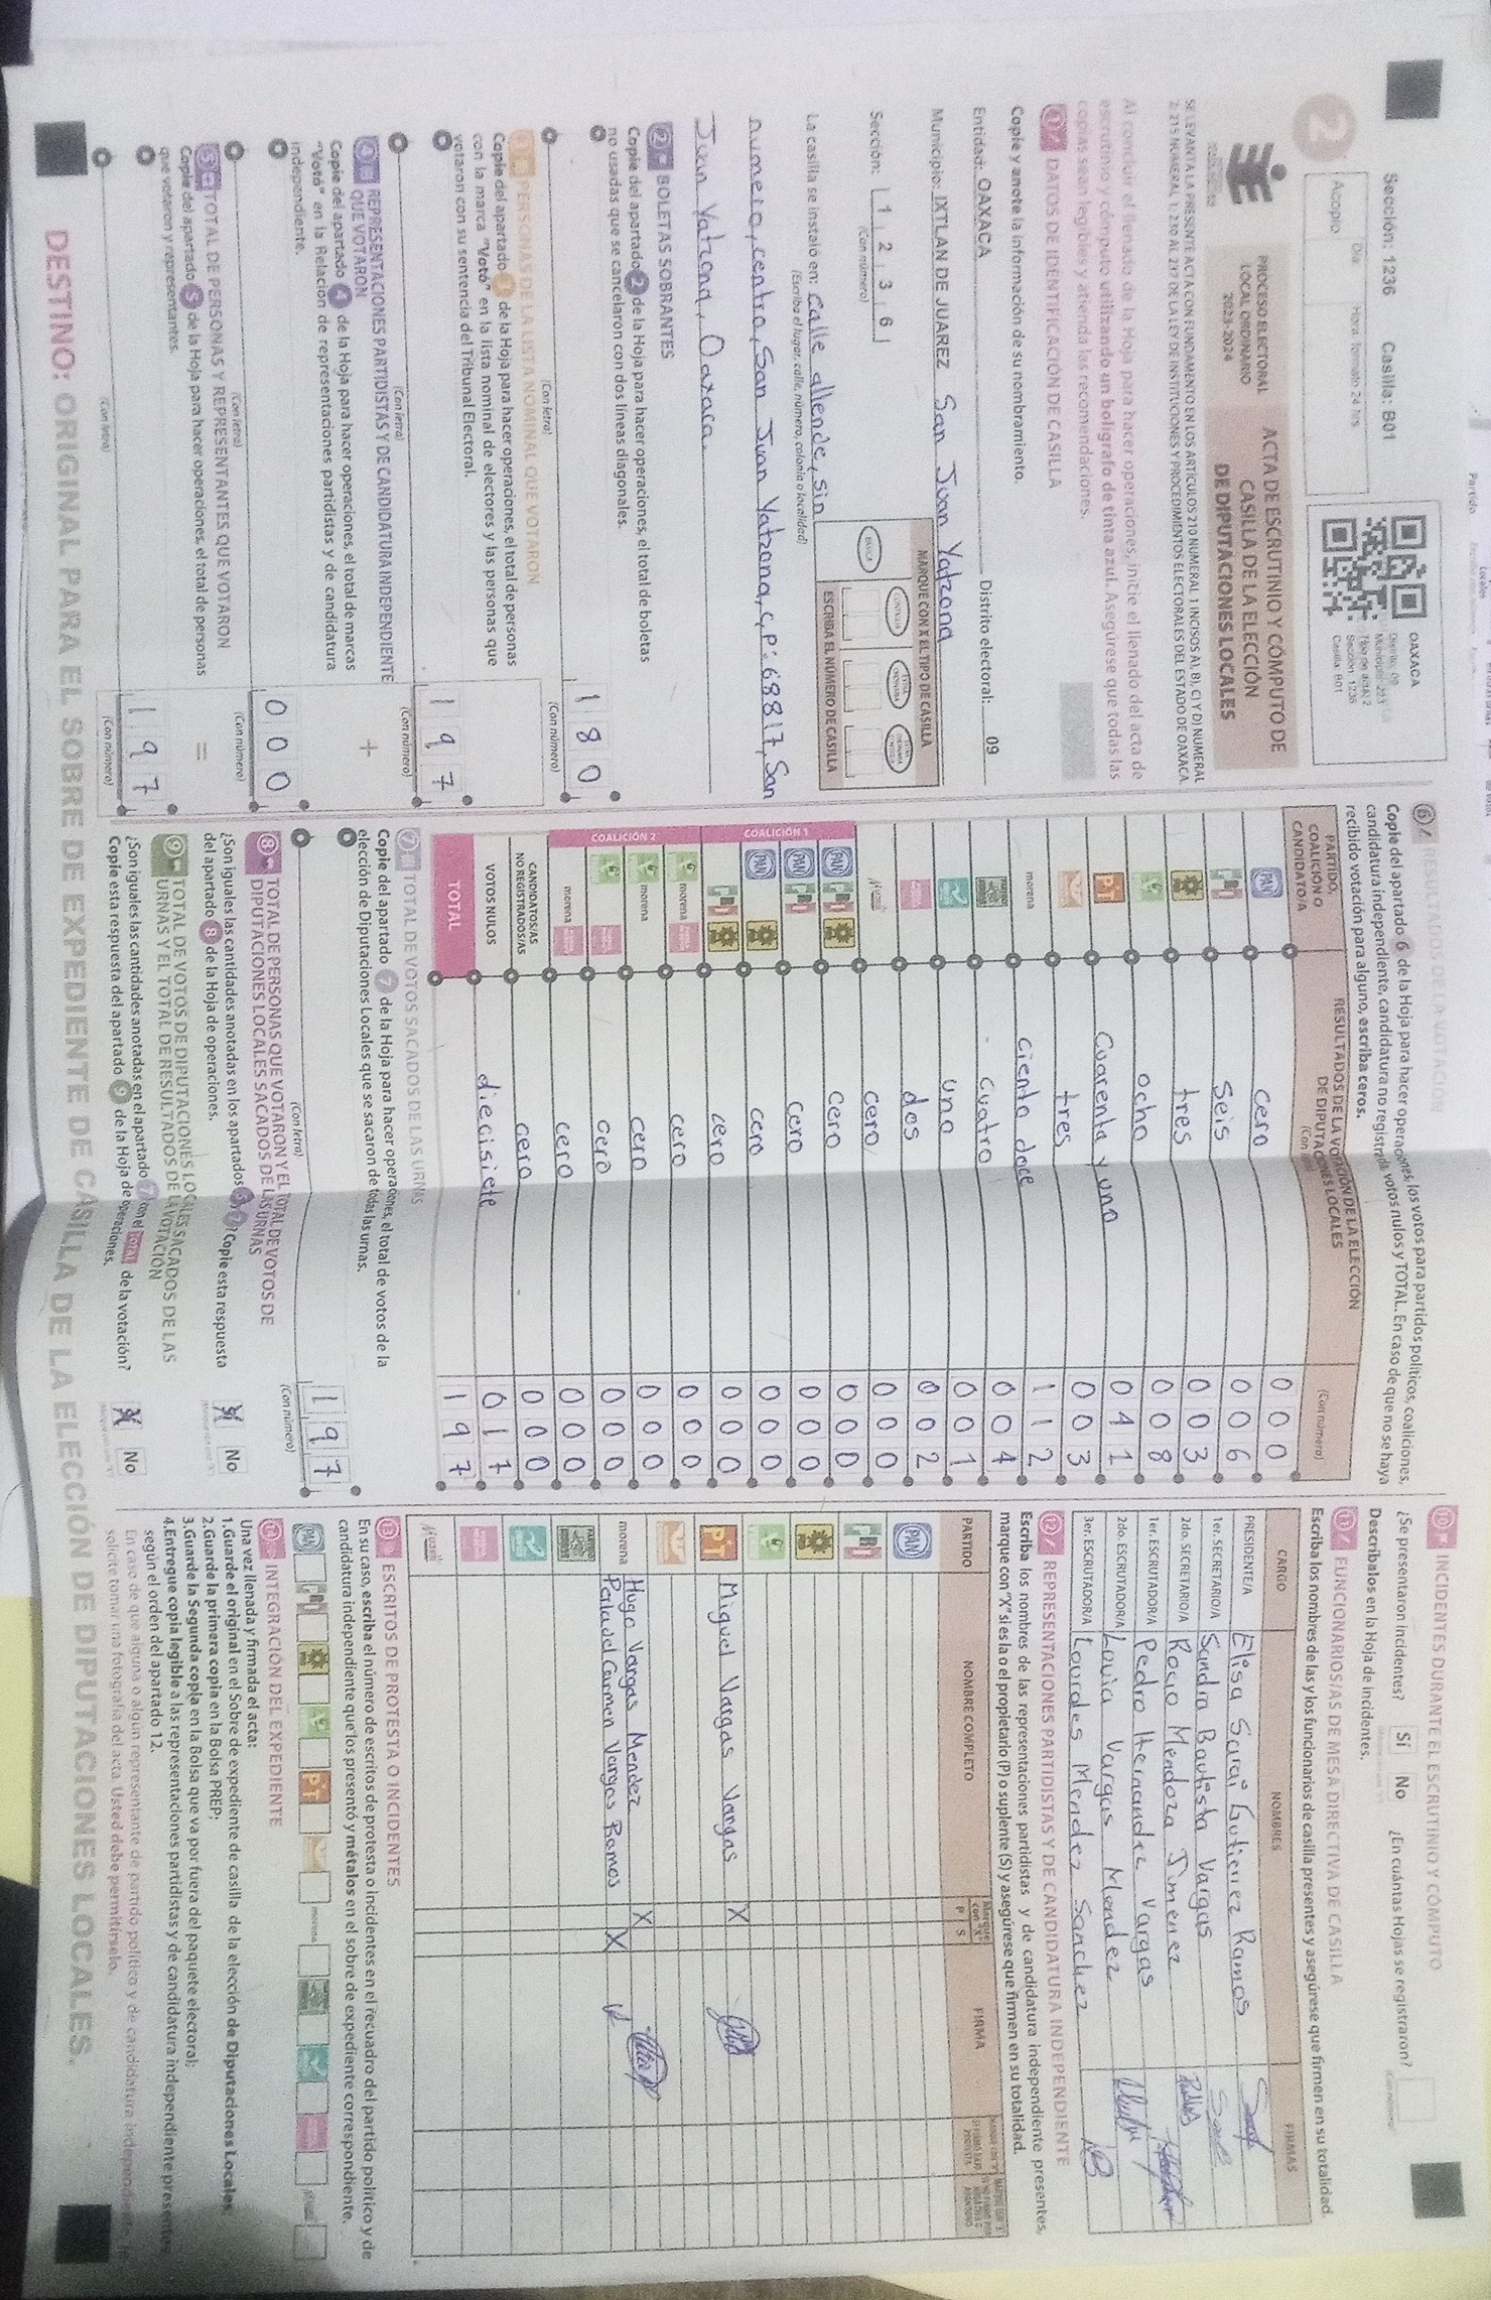 Sección: 1236 Casilla: B01
Día Hora formato 24 hrs
Acopio
2
OAXACA
Distrito: 09
Municipio: 223
Tipo de acta: 2
Sección: 1236
Casilla: B01
PROCESO ELECTORAL
LOCAL ORDINARIO
2023-2024
ACTA DE ESCRUTINIO Y CÓMPUTO DE
CASILLA DE LA ELECCIÓN
DE DIPUTACIONES LOCALES
SE LEVANTA LA PRESENTE ACTA CON FUNDAMENTO EN LOS ARTÍCULOS 210 NUMERAL 1 INCISOS A), B), C) Y D) NUMERAL
2; 215 NUMERAL 1; 230 AL 237 DE LA LEY DE INSTITUCIONES Y PROCEDIMIENTOS ELECTORALES DEL ESTADO DE OAXACA.
Al concluir el llenado de la Hoja para hacer operaciones, inicie el llenado del acta de
escrutinio y cómputo utilizando un bolígrafo de tinta azul. Asegúrese que todas las
copias sean legibles y atienda las recomendaciones.
1 DATOS DE IDENTIFICACIÓN DE CASILLA
Copie y anote la información de su nombramiento.
Entidad: OAXACA Distrito electoral: 09
Municipio: IXTLAN DE JUAREZ San Juan Yatzona
Sección: 1 2 3 6
(Con número)
MARQUE CON X EL TIPO DE CASILLA
BÁSICA
ESCRIBA EL NÚMERO DE CASILLA
La casilla se instaló en: Calle allende, sin
(Escriba el lugar, calle, número, colonia o localidad)
numero, centro, San Juan Yatzona, C.P: 68817, San
Juan Yatzona, Oaxaca.
2 BOLETAS SOBRANTES
Copie del apartado 2 de la Hoja para hacer operaciones, el total de boletas
no usadas que se cancelaron con dos líneas diagonales.
180
(Con letra) (Con número)
3 PERSONAS DE LA LISTA NOMINAL QUE VOTARON
Copie del apartado 3 de la Hoja para hacer operaciones, el total de personas
con la marca "Votó" en la lista nominal de electores y las personas que
votaron con su sentencia del Tribunal Electoral.
197
(Con letra) (Con número)
4 REPRESENTACIONES PARTIDISTAS Y DE CANDIDATURA INDEPENDIENTE
QUE VOTARON
Copie del apartado 4 de la Hoja para hacer operaciones, el total de marcas
"Votó" en la Relación de representaciones partidistas y de candidatura
independiente.
+
000
(Con letra) (Con número)
5 TOTAL DE PERSONAS Y REPRESENTANTES QUE VOTARON
Copie del apartado 5 de la Hoja para hacer operaciones, el total de personas
que votaron y representantes.
=
197
(Con letra) (Con número)
6 RESULTADOS DE LA VOTACIÓN
Copie del apartado 6 de la Hoja para hacer operaciones, los votos para partidos políticos, coaliciones,
candidatura independiente, candidatura no registrada, votos nulos y TOTAL. En caso de que no se haya
recibido votación para alguno, escriba ceros.
PARTIDO,
COALICIÓN O
CANDIDATO/A
RESULTADOS DE LA VOTACIÓN DE LA ELECCIÓN
DE DIPUTACIONES LOCALES
(Con número)
PAN cero 000
PRI seis 006
tres 003
ocho 008
PT Cuarenta y uno 041
tres 003
morena ciento doce 112
cuatro 004
uno 001
dos 002
cero 000
COALICIÓN 1
PAN PRI cero 000
PAN PRI cero 000
PAN cero 000
PRI cero 000
COALICIÓN 2
morena cero 000
morena cero 000
cero 000
morena cero 000
CANDIDATOS/AS
NO REGISTRADOS/AS cero 000
VOTOS NULOS diecisiete 017
TOTAL 197
7 TOTAL DE VOTOS SACADOS DE LAS URNAS
Copie del apartado 7 de la Hoja para hacer operaciones, el total de votos de la
elección de Diputaciones Locales que se sacaron de todas las urnas.
197
(Con letra) (Con número)
8 TOTAL DE PERSONAS QUE VOTARON Y EL TOTAL DE VOTOS DE
DIPUTACIONES LOCALES SACADOS DE LAS URNAS
¿Son iguales las cantidades anotadas en los apartados 5 y 7? Copie esta respuesta
del apartado 8 de la Hoja de operaciones.
Sí No
9 TOTAL DE VOTOS DE DIPUTACIONES LOCALES SACADOS DE LAS
URNAS Y EL TOTAL DE RESULTADOS DE LA VOTACIÓN
¿Son iguales las cantidades anotadas en el apartado 7 con el TOTAL de la votación?
Copie esta respuesta del apartado 9 de la Hoja de operaciones.
Sí No
10 INCIDENTES DURANTE EL ESCRUTINIO Y CÓMPUTO
¿Se presentaron incidentes? Sí No ¿En cuántas Hojas se registraron?
Descríbalos en la Hoja de incidentes.
11 FUNCIONARIOS/AS DE MESA DIRECTIVA DE CASILLA
Escriba los nombres de las y los funcionarios de casilla presentes y asegúrese que firmen en su totalidad.
CARGO NOMBRES FIRMAS
PRESIDENTE/A Elisa Sarai Gutierrez Ramos
1er. SECRETARIO/A Sandra Bautista Vargas
2do. SECRETARIO/A Rocio Mendoza Jimenez
1er. ESCRUTADOR/A Pedro Hernandez Vargas
2do. ESCRUTADOR/A Lovia Vargas Mendez
3er. ESCRUTADOR/A Lourdes Mendez Sanchez
12 REPRESENTACIONES PARTIDISTAS Y DE CANDIDATURA INDEPENDIENTE
Escriba los nombres de las representaciones partidistas y de candidatura independiente presentes,
marque con "X" si es la o el propietario (P) o suplente (S) y asegúrese que firmen en su totalidad.
PARTIDO NOMBRE COMPLETO Marque con "X" P S FIRMA
PAN
PRI
PT Miguel Vargas Vargas X
morena Hugo Vargas Mendez X
Perla del Carmen Vargas Ramos X
13 ESCRITOS DE PROTESTA O INCIDENTES
En su caso, escriba el número de escritos de protesta o incidentes en el recuadro del partido político y de
candidatura independiente que los presentó y métalos en el sobre de expediente correspondiente.
PAN PRI PT morena
14 INTEGRACIÓN DEL EXPEDIENTE
Una vez llenada y firmada el acta:
1.Guarde el original en el Sobre de expediente de casilla de la elección de Diputaciones Locales;
2.Guarde la primera copia en la Bolsa PREP;
3.Guarde la Segunda copia en la Bolsa que va por fuera del paquete electoral;
4.Entregue copia legible a las representaciones partidistas y de candidatura independiente presentes
según el orden del apartado 12.
En caso de que alguna o algún representante de partido político y de candidatura independiente
solicite tomar una fotografía del acta. Usted debe permitírselo.
DESTINO: ORIGINAL PARA EL SOBRE DE EXPEDIENTE DE CASILLA DE LA ELECCIÓN DE DIPUTACIONES LOCALES.